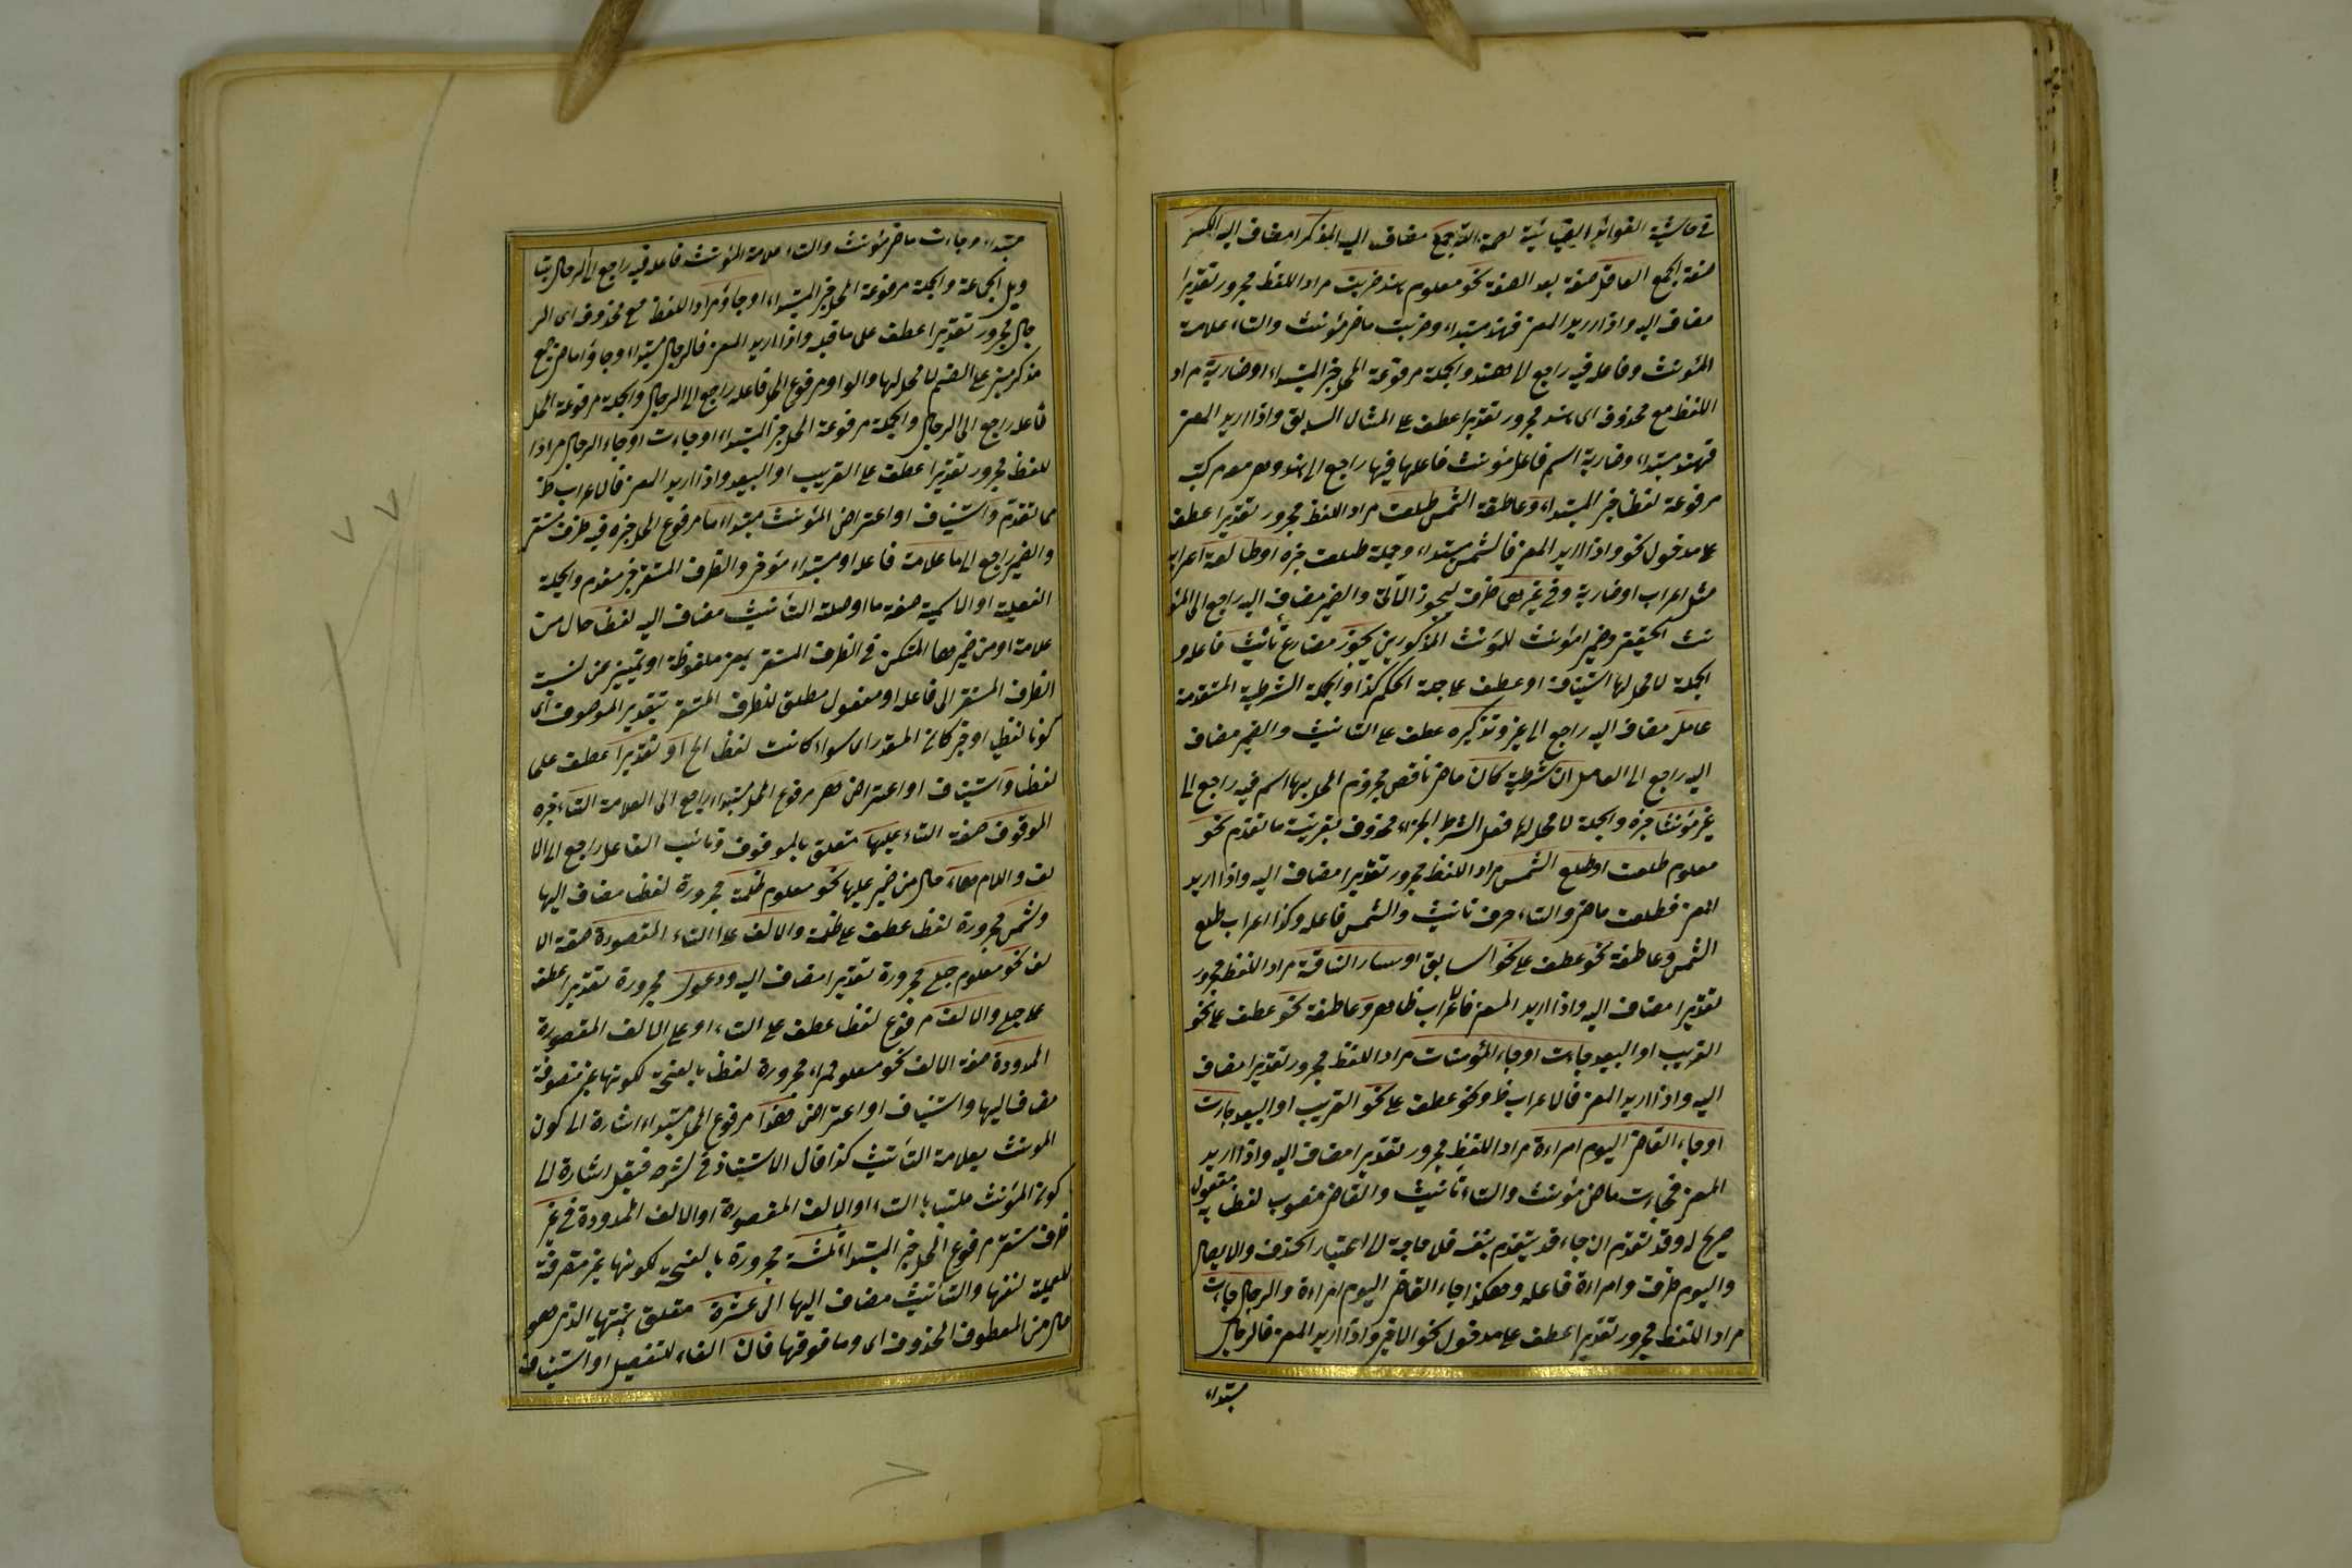 في حاشية الفوائد الضيائية لعصمة الله جمع مضاف اليه المذكر مضاف اليه المكسر
صفة الجمع العاقل صفة بعد الصفة نحو معلوم هند ضربت مراد اللفظ مجرور تقديرا
مضاف اليه واذا اريد المعنى فهند مبتداء وضربت ماض مؤنث والتاء علامة
المؤنث وفاعله فيه راجع الى هند والجملة مرفوعة المحل خبر المبتداء او ضاربة مراد
اللفظ مع محذوف اى هند مجرور تقديرا عطف على المثال السابق واذا اريد المعنى
فهند مبتداء وضاربة اسم فاعل مؤنث فاعلها فيها راجع الى هند وهى معه مركبة
مرفوعة لفظا خبر المبتداء وعاطفة الشمس طلعت مراد اللفظ مجرور تقديرا عطف
على مدخول نحو واذا اريد المعنى فالشمس مبتداء وجملة طلعت خبره او طالعة اعرابه
مثل اعراب او ضاربة وفي غيرهما ظرف ليجوز الآتى والضمير مضاف اليه راجع الى المؤ
نث الحقيقى وضمير المؤنث المذكورين يجوز مضارع تأنيث فاعله و
الجملة لا محل لها استيناف او عطف على جملة الحكم كذا والجملة الشرطية المتقدمة
عامل مضاف اليه راجع الى غير وتذكيره عطف على التانيث والضمير مضاف
اليه راجع الى العامل ان شرطية كان ماض ناقص مجزوم المحل بها اسم فيه راجع الى
غير مؤنثا خبره والجملة لا محل لها فعل الشرط الجزاء محذوف بقرينة ما تقدم نحو
معلوم طلعت او طلع الشمس مراد اللفظ مجرور تقديرا مضاف اليه واذا اريد
المعنى فطلعت ماض والتاء حرف تانيث والشمس فاعله وكذا اعراب طلع
الشمس وعاطفة نحو عطف على نحو السابق او سار الناقة مراد اللفظ مجرور
تقديرا مضاف اليه واذا اريد المعنى فاعراب ظاهر وعاطفة نحو عطف على نحو
القريب او البعيد جاءت او جاء المؤمنات مراد اللفظ مجرور تقديرا مضاف
اليه واذا اريد المعنى فالاعراب ظ ونحو عطف على نحو القريب او البعيد جاءت
او جاء القاضى اليوم امراءة مراد اللفظ مجرور تقديرا مضاف اليه واذا اريد
المعنى فجاءت ماض مؤنث والتاء تأنيث والقاضى منصوب لفظا مفعول به
صريح له وقد تقدم ان جاء قد يتقدم بنفسه فلا حاجة الى اعتبار الحذف والايصال
واليوم ظرف وامراءة فاعله وهكذا جاء القاضى اليوم امراءة والرجال جاءت
مراد اللفظ مجرور تقديرا عطف على مدخول نحو الاخير واذا اريد المعنى فالرجال
مبتداء
مبتداء وجاءت ماض مؤنث والتاء علامة المؤنث فاعله فيه راجع الى الرجال بتا
ويل الجماعة والجملة مرفوعة المحل خبر المبتداء او جاؤ مراد اللفظ مع محذوف اى الر
جال مجرور تقديرا عطف على ما قبله واذا اريد المعنى فالرجال مبتداء وجاؤا ماض جمع
مذكر مبنى على الضم لا محل لها والواو مرفوع المحل فاعله راجع الى الرجال والجملة مرفوعة المحل
فاعله راجع الى الرجال والجملة مرفوعة المحل خبر المبتداء او جاءت او جاء الرجال مرادا
للفظ مجرور تقديرا عطف على القريب او البعيد واذا اريد المعنى فالاعراب ظ
مما تقدم واستيناف او اعتراض المؤنث مبتداء ما مرفوع المحل خبره فيه ظرف مستقر
والضمير راجع الى ما علامة فاعله او مبتداء مؤخر والظرف المستقر خبر مقدم والجملة
الفعلية او الاسمية صفة ما او صلة التأنيث مضاف اليه لفظا حال من
علامة او من ضميرها المتمكن في الظرف المستقر بمعنى ملفوظة او تمييز عن نسبة
الظرف المستقر الى فاعله او مفعول مطلق للظرف المستقر بتقدير الموصوف اى
كونا لفظيا او خبر كان المقدر اى سواء كانت لفظا الخ او تقديرا عطف على
لفظا واستيناف او اعتراض هى مرفوع المحل مبتداء راجع الى العلامة التاء خبره
الموقوف صفة التاء عليها متعلق بالموقوف ونائب الفاعل راجع الى الا
لف واللام هاء حال من ضمير عليها نحو معلوم ظلمة مجرورة لفظا مضاف اليها
وشمس مجرورة لفظا عطف على ظلمة والالف على التاء المقصورة صفة الا
لف نحو معلوم حبلى مجرورة تقديرا مضاف اليه ودعوى مجرورة تقديرا عطف
على حبلى والالف مرفوع لفظا عطف على التاء او على الالف المقصورة
الممدودة صفة الالف نحو معلوم حمراء مجرورة لفظا بالفتحة لكونها غير منصرفة
مضاف اليها واستيناف او اعتراض هذا مرفوع المحل مبتداء اشارة الى كون
المونث بعلامة التأنيث كذا قال الاستاذ في شرحه فيقل اشارة الى
كون المؤنث ملتبسا بالتاء او الالف المقصورة او الالف الممدودة في غير
ظرف مستقر مرفوع المحل خبر المبتداء ثلثة مجرورة بالفتحة لكونها غير منصرفة
للعلمية لنفسها والتأنيث مضاف اليها الى عشرة متعلق بمنتهيا الذى هو
حال من المعطوف المحذوف اى وما فوقها فان الفاء للتفصيل او استيناف